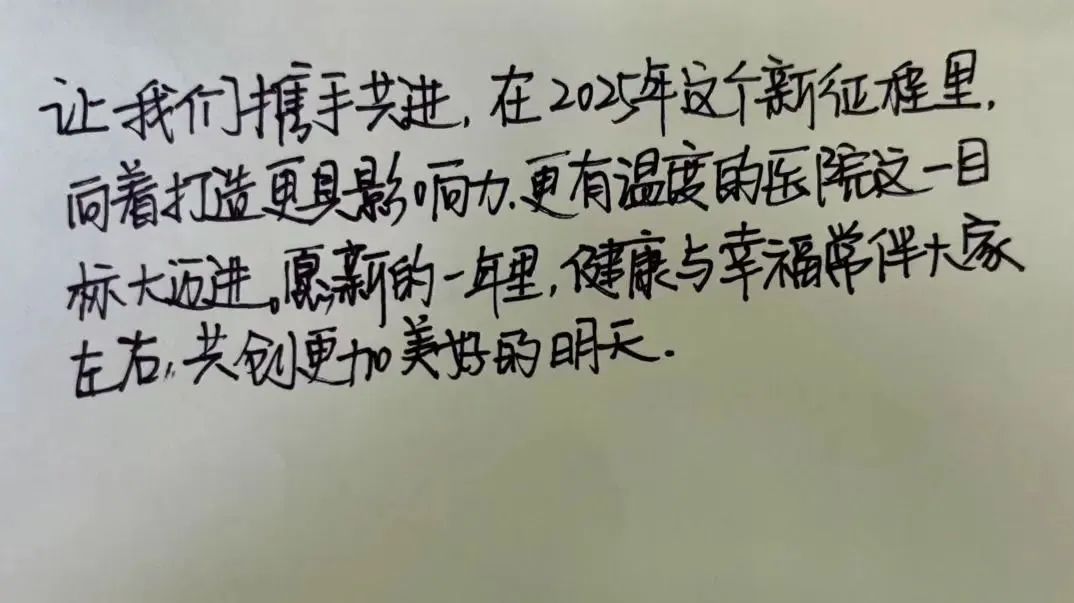 让我们携手共进,在2025年这个新征程里,
向着打造更具影响力、更有温度的医院这一目
标大迈进。愿新的一年里,健康与幸福常伴大家
左右,共创更加美好的明天.